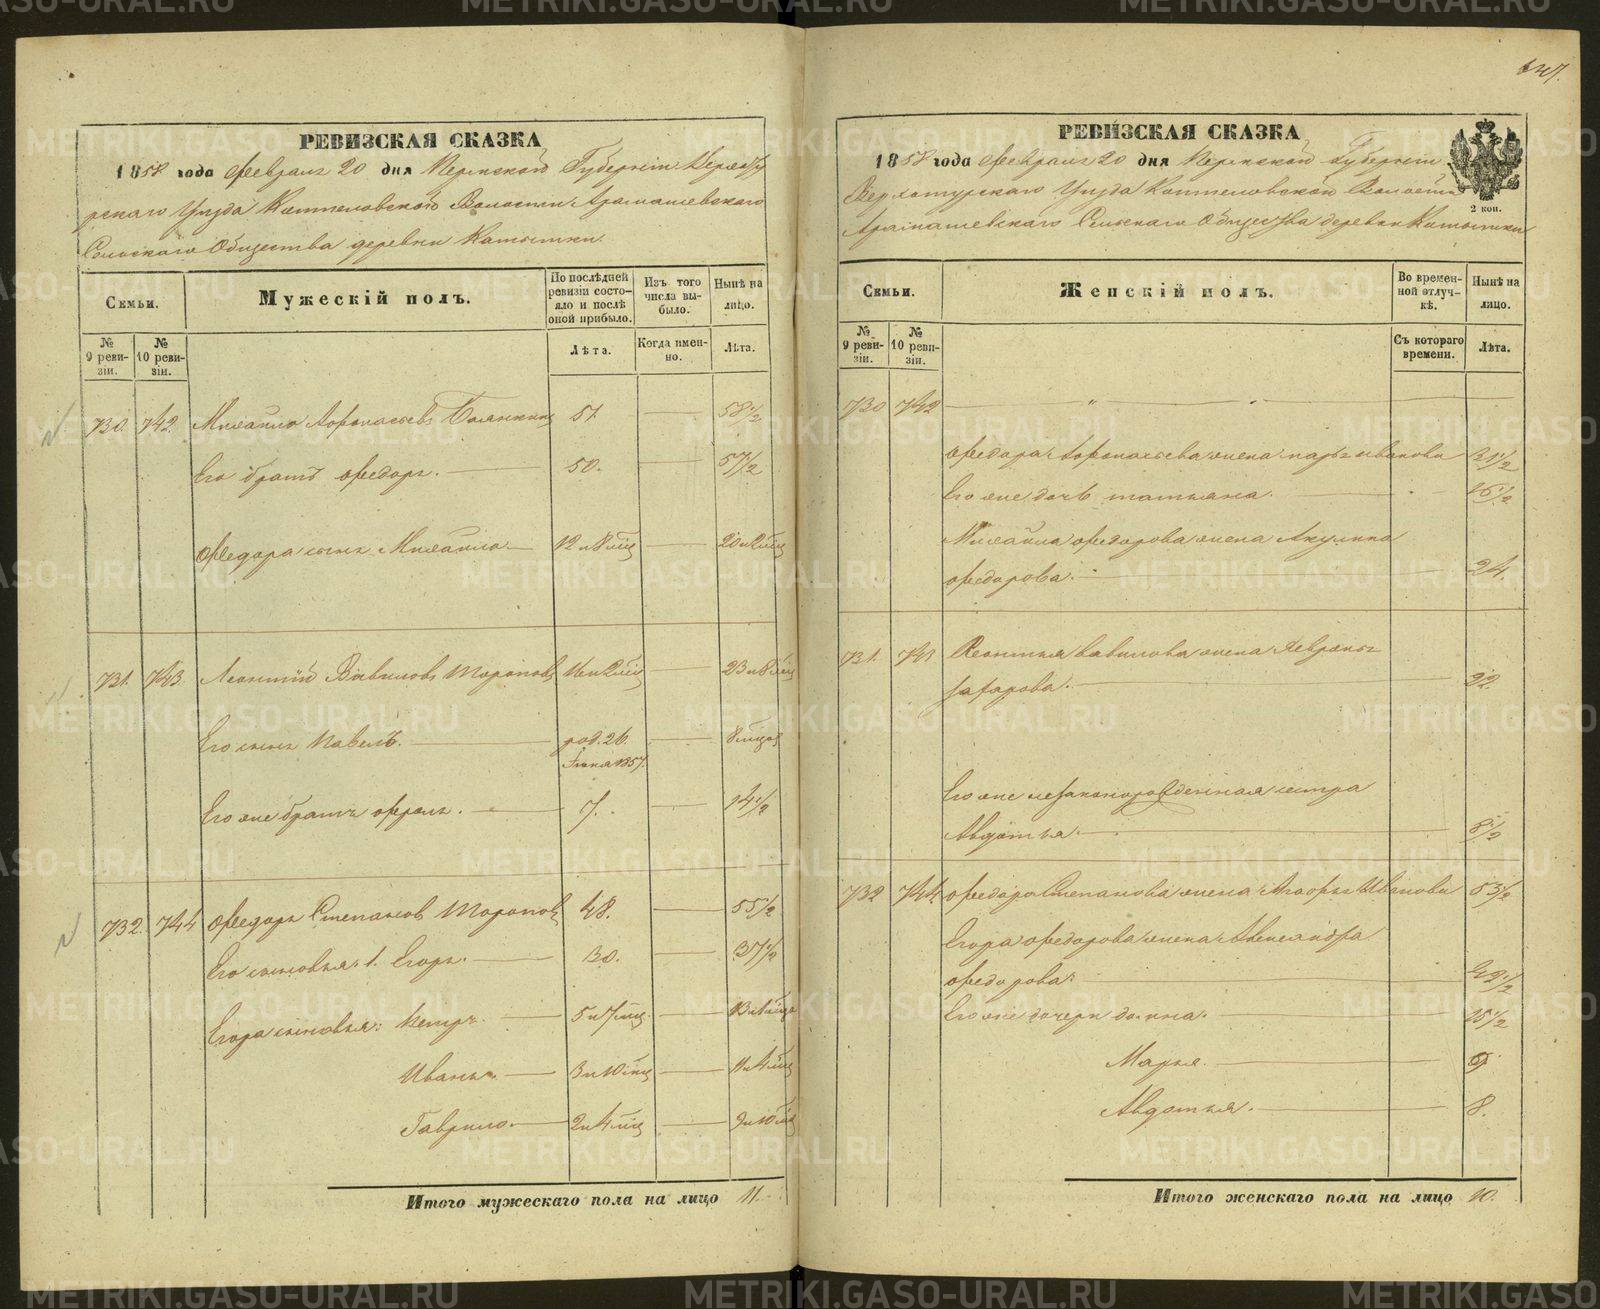 147.
РЕВИЗСКАЯ СКАЗКА
1858 года Февраля 20 дня Пермской Губернiи Верхоту
рскаго Уѣзда Коптеловской Волости Арамашевскаго
Сельскаго Общества деревни Катышки.
Семьи.
Мужескiй полъ.
По послѣдней ревизiи состояло и послѣ оной прибыло.
Изъ того числа выбыло.
Нынѣ на лицо.
№ 9 ревизiи.
№ 10 ревизiи.
Лѣта.
Когда именно.
Лѣта.
730. 742. Михайло Афонасьевъ 51. 58 1/2
Его братъ Федоръ. 50. 57 1/2
Федора сынъ Михайло 12 и 8 мѣц 20 и 2 мѣц
731. 743. Леонтiй Вавиловъ Торопов 23 и 8 мѣц
Его сынъ Павелъ. род. 26. Iюня 1857. 8 мѣцов
Его же братъ 7. 14 1/2
732. 744 Федоръ Степанов Торопов 48. 55 1/2
Его сыновья: 1. Егоръ. 30. 37 1/2
Егора сыновья: Петръ. 5 и 7 мѣц. 13 и мѣцов
Иванъ. 3 и 10 мѣц 11 и 4 мѣц
Гаврило. 2 и 4 мѣц 9 и 10 мѣц
Итого мужескаго пола на лицо 11.
РЕВИЗСКАЯ СКАЗКА
1858 года Февраля 20 дня Пермской Губернiи
Верхотурскаго Уѣзда Коптеловской Волости
Арамашевскаго Сельскаго Общества деревни Катышки
2 коп.
Семьи.
Женскiй полъ.
Во временной отлучкѣ.
Нынѣ на лицо.
№ 9 ревизiи.
№ 10 ревизiи.
Съ котораго времени.
Лѣта.
730 742
Федора Афонасьева жена Марья Иванова 51 1/2
Его же дочь Татьяна. 16 1/2
Михайла Федорова жена Акулина
Федорова. 24.
731. 743 Леонтья Вавилова жена Февронья
Захарова. 22.
Его же незаконорожденная сестра
Авдотья. 8 1/2
732 744. Федора Степанова жена Иванова 53 1/2
Егора Федорова жена Александра
Федорова. 42 1/2
Его же дочери Домна. 15 1/2
Марья. 9
Авдотья. 8.
Итого женскаго пола на лицо 10.
METRIKI.GASO-URAL.RU